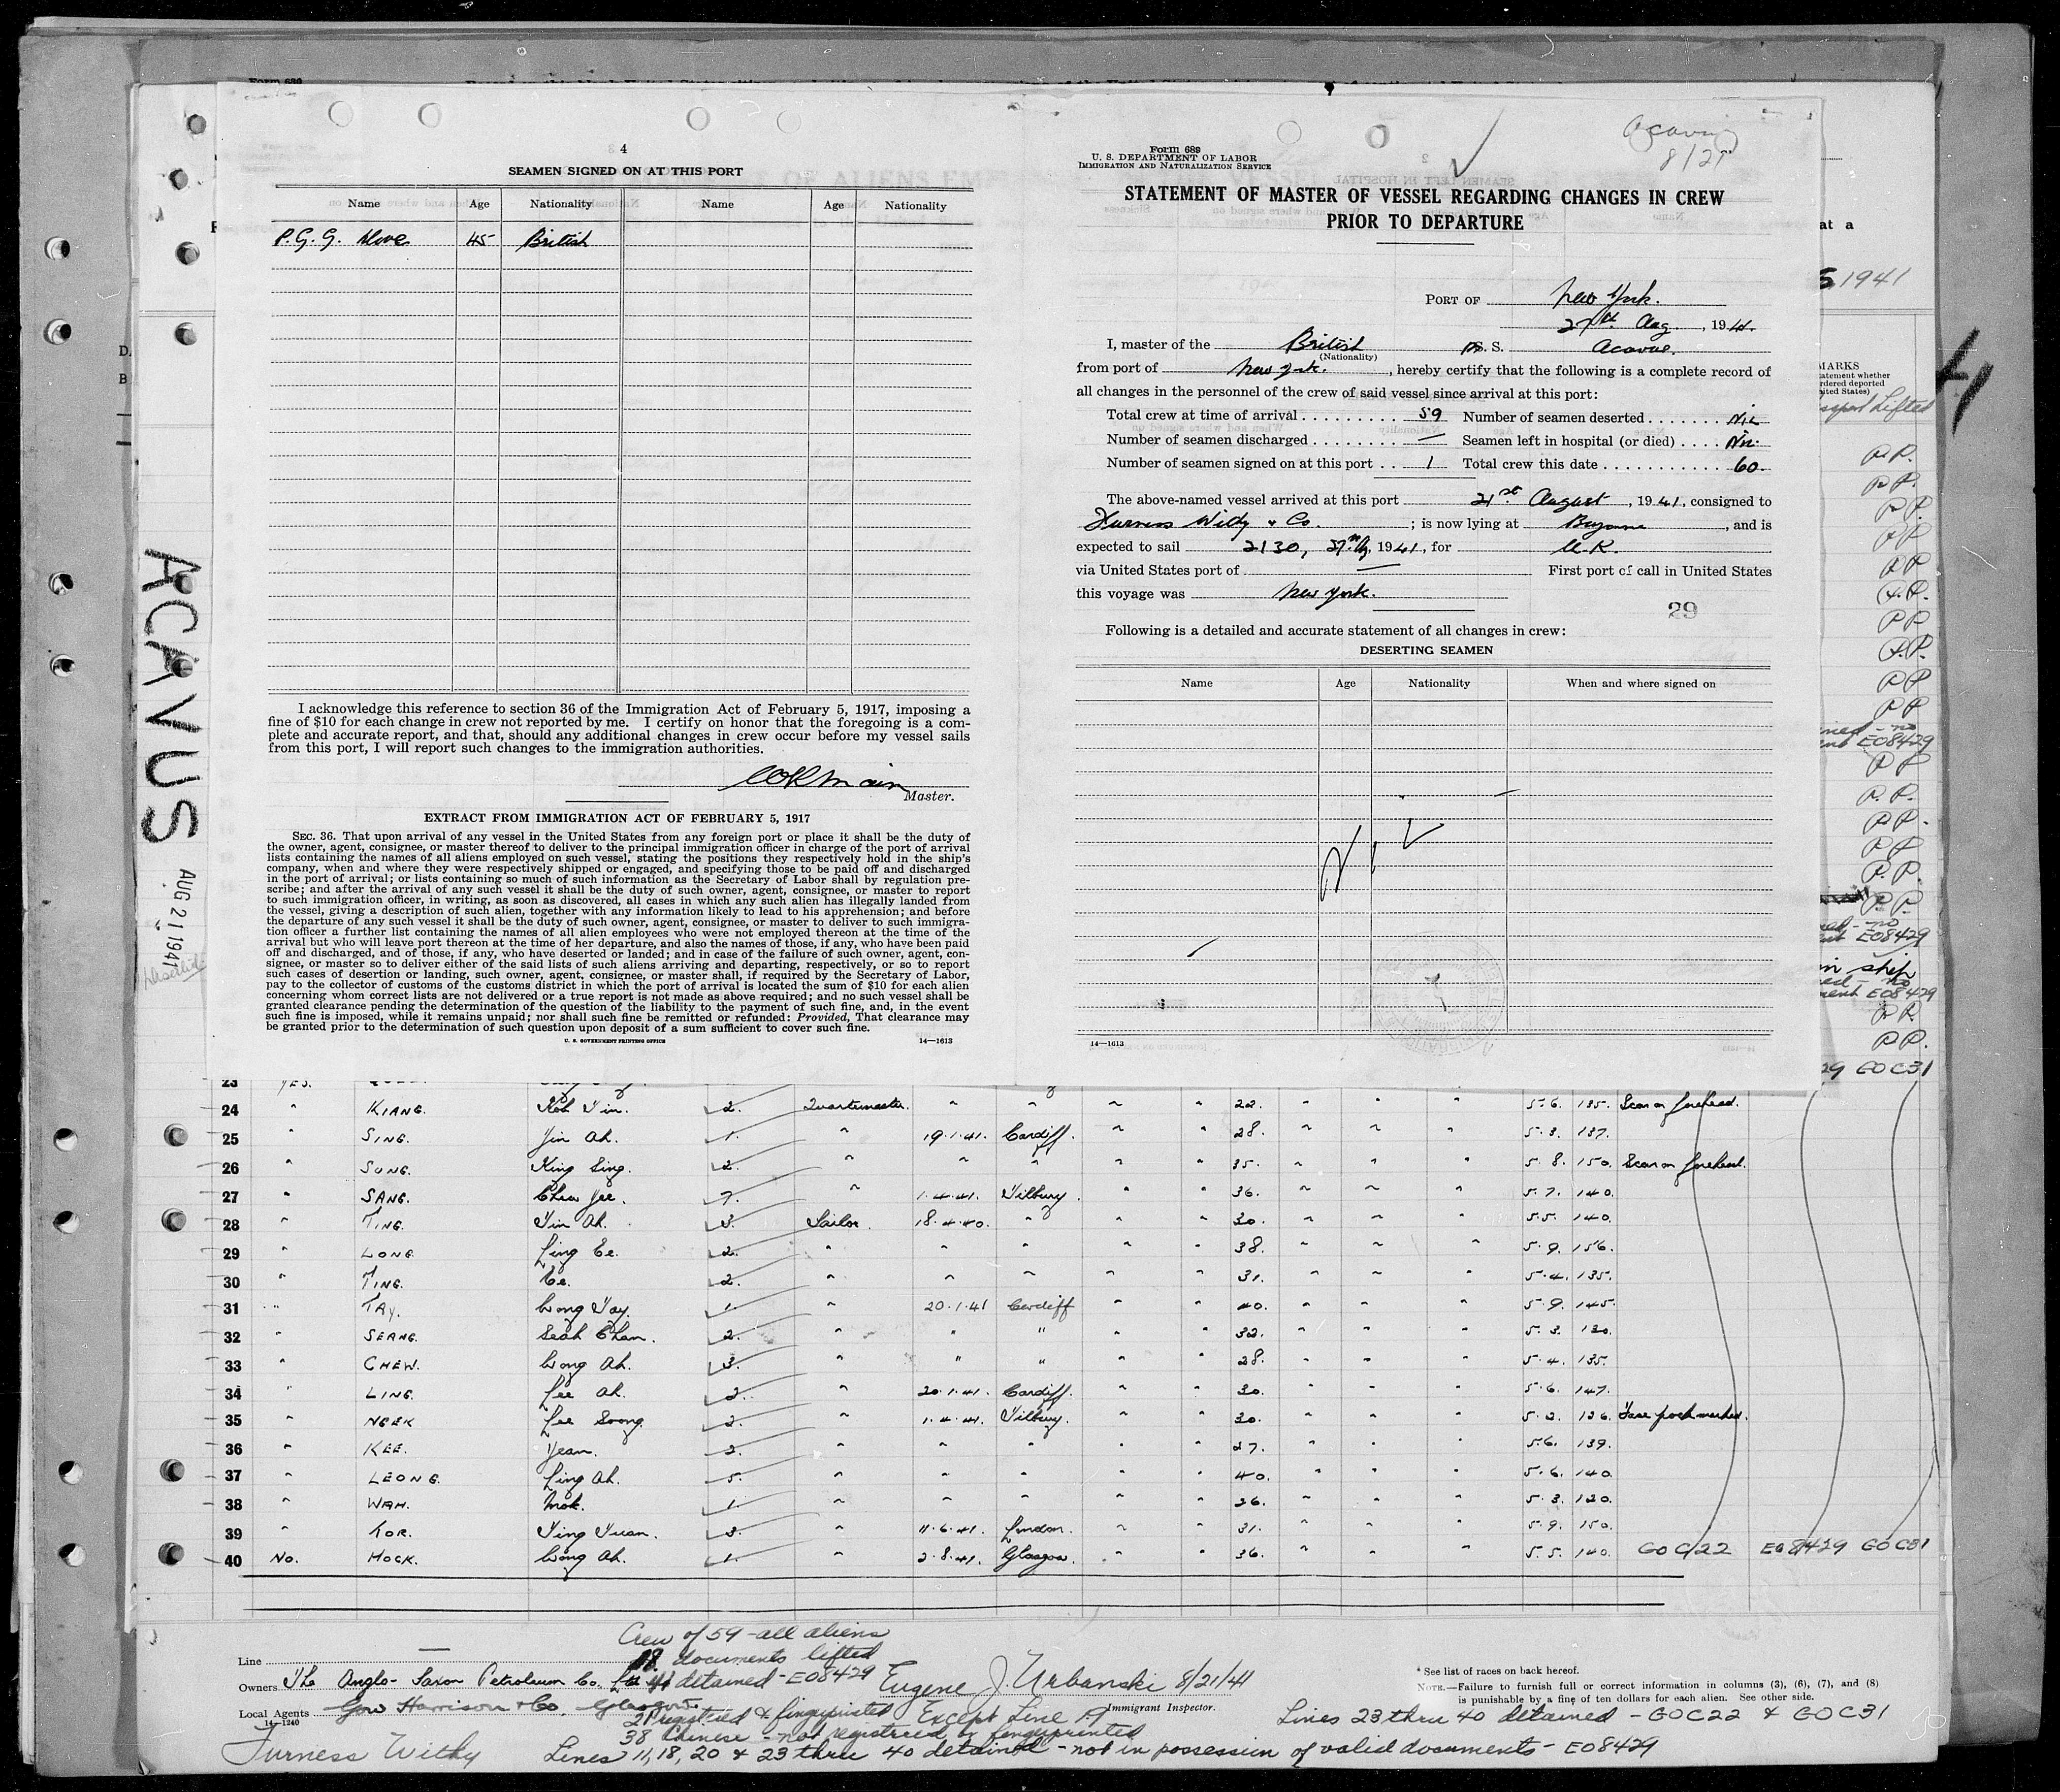 4
SEAMEN SIGNED ON AT THIS PORT
Name Age Nationality Name Age Nationality
P. G. G. 45 British
I acknowledge this reference to section 36 of the Immigration Act of February 5, 1917, imposing a
fine of $10 for each change in crew not reported by me. I certify on honor that the foregoing is a com-
plete and accurate report, and that, should any additional changes in crew occur before my vessel sails
from this port, I will report such changes to the immigration authorities.
Master.
EXTRACT FROM IMMIGRATION ACT OF FEBRUARY 5, 1917
SEC. 36. That upon arrival of any vessel in the United States from any foreign port or place it shall be the duty of
the owner, agent, consignee, or master thereof to deliver to the principal immigration officer in charge of the port of arrival
lists containing the names of all aliens employed on such vessel, stating the positions they respectively hold in the ship's
company, when and where they were respectively shipped or engaged, and specifying those to be paid off and discharged
in the port of arrival; or lists containing so much of such information as the Secretary of Labor shall by regulation pre-
scribe; and after the arrival of any such vessel it shall be the duty of such owner, agent, consignee, or master to report
to such immigration officer, in writing, as soon as discovered, all cases in which any such alien has illegally landed from
the vessel, giving a description of such alien, together with any information likely to lead to his apprehension; and before
the departure of any such vessel it shall be the duty of such owner, agent, consignee, or master to deliver to such immigra-
tion officer a further list containing the names of all alien employees who were not employed thereon at the time of the
arrival but who will leave port thereon at the time of her departure, and also the names of those, if any, who have been paid
off and discharged, and of those, if any, who have deserted or landed; and in case of the failure of such owner, agent, con-
signee, or master so to deliver either of the said lists of such aliens arriving and departing, respectively, or so to report
such cases of desertion or landing, such owner, agent, consignee, or master shall, if required by the Secretary of Labor,
pay to the collector of customs of the customs district in which the port of arrival is located the sum of $10 for each alien
concerning whom correct lists are not delivered or a true report is not made as above required; and no such vessel shall be
granted clearance pending the determination of the question of the liability to the payment of such fine, and, in the event
such fine is imposed, while it remains unpaid; nor shall such fine be remitted or refunded: Provided, That clearance may
be granted prior to the determination of such question upon deposit of a sum sufficient to cover such fine.
U. S. GOVERNMENT PRINTING OFFICE 14—1613
ACAVUS
AUG 21 1941
Form 689
U. S. DEPARTMENT OF LABOR
IMMIGRATION AND NATURALIZATION SERVICE
8/27
STATEMENT OF MASTER OF VESSEL REGARDING CHANGES IN CREW
PRIOR TO DEPARTURE
PORT OF New York.
27th Aug, 1941.
I, master of the British S. S. Acavus.
(Nationality)
from port of New York., hereby certify that the following is a complete record of
all changes in the personnel of the crew of said vessel since arrival at this port:
Total crew at time of arrival 59 Number of seamen deserted Nil
Number of seamen discharged — Seamen left in hospital (or died) Nil
Number of seamen signed on at this port 1 Total crew this date 60.
The above-named vessel arrived at this port 21st August, 1941, consigned to
Furness Withy & Co.; is now lying at Bayonne, and is
expected to sail 2130, 27th Aug, 1941, for U.K.
via United States port of — First port of call in United States
this voyage was New York.
29
Following is a detailed and accurate statement of all changes in crew:
DESERTING SEAMEN
Name Age Nationality When and where signed on
Nil
14—1613
at a
1941
23 YES.
24 " KIANG. Koh Yin. 2. Quartermaster. " " " " 22. " " " 5.6. 135. Scar on forehead.
25 " SING. Yin Ah. 1. " 19.1.41. Cardiff. " " 28. " " " 5.3. 137.
26 " SUNG. King Sing. 2. " " " " " 35. " " " 5.8. 150. Scar on forehead.
27 " SANG. Chew Jee. 7. " 1.4.41. Tilbury. " " 36. " " " 5.7. 140.
28 " TING. Yin Ah. 3. Sailor. 18.4.40. " " " 30. " " " 5.5. 140.
29 " LONG. Ling Ee. 2. " " " " " 38. " " " 5.9. 156.
30 " TING. Ee. 2. " " " " " 31. " " " 5.4. 135.
31 " TAY. Wong Tay. 1. " 20.1.41 Cardiff " " 40. " " " 5.9. 145.
32 " SEANG. Seah Chan. 2. " " " " " 32. " " " 5.3. 130.
33 " CHEW. Wong Ah. 3. " " " " " 28. " " " 5.4. 135.
34 " LING. Lee Ah. 2. " 20.1.41. Cardiff. " " 30. " " " 5.6. 147.
35 " NGEK Lee Soong. 2. " 1.4.41. Tilbury. " " 30. " " " 5.2. 126. Face pock marked.
36 " KEE. Yean. 2. " " " " " 27. " " " 5.6. 139.
37 " LEONG. Ling Ah. 5. " " " " " 40. " " " 5.6. 140.
38 " WAH. Mok. 1. " " " " " 26. " " " 5.3. 120.
39 " KOR. Ting Yuan. 3. " 11.6.41. London. " " 31. " " " 5.9. 150.
40 No. HOCK. Wong Ah. 1. " 2.8.41. Glasgow. " " 36. " " " 5.5. 140. GOC22 E08429 GOC31
Crew of 59 - all aliens
18 documents lifted
Line
Owners The Anglo-Saxon Petroleum Co. Ltd. 41 detained - E08429 Eugene J Urbanski 8/21/41
Immigrant Inspector.
Local Agents Gow Harrison & Co. Glasgow.
14—1240
21 registered & fingerprinted Except Line 19
38 Chinese - not registered or fingerprinted
Furness Withy Lines 11, 18, 20 & 23 thru 40 detained - not in possession of valid documents - E08429
* See list of races on back hereof.
NOTE.—Failure to furnish full or correct information in columns (3), (6), (7), and (8)
is punishable by a fine of ten dollars for each alien. See other side.
Lines 23 thru 40 detained - GOC22 & GOC31